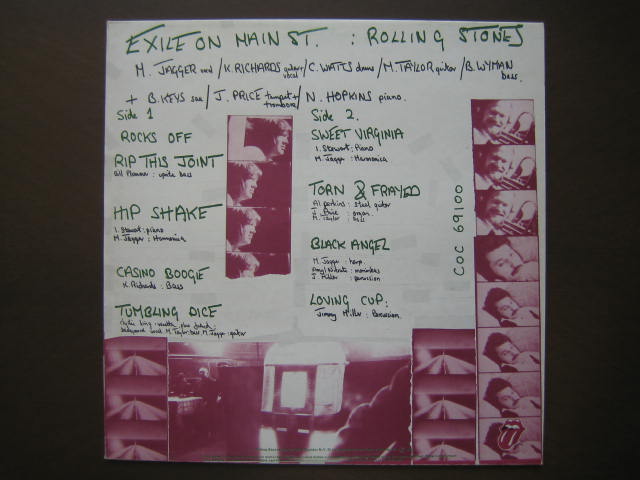 EXILE ON MAIN ST. : ROLLING STONES
M. JAGGER vocal / K. RICHARDS guitar vocal / C. WATTS drums / M. TAYLOR guitar / B. WYMAN bass.
+ B. KEYS sax / J. PRICE trumpet + trombone / N. HOPKINS piano.
Side 1
ROCKS OFF
RIP THIS JOINT
Bill Plummer : uprite bass
HIP SHAKE
I. Stewart : piano
M. Jagger : Harmonica
CASINO BOOGIE
K. Richards : Bass
TUMBLING DICE
M. Taylor: bass, M. Jagger: guitar
Side 2.
SWEET VIRGINIA
I. Stewart: Piano
M. Jagger: Harmonica
TORN & FRAYED
Al perkins : steel guitar
J. Price : organ.
M. Taylor : bass
BLACK ANGEL
M. Jagger : harp
Amyl Nitrate : marimbas
J. Miller : percussion
LOVING CUP:
Jimmy Miller : Percussion.
COC 69100